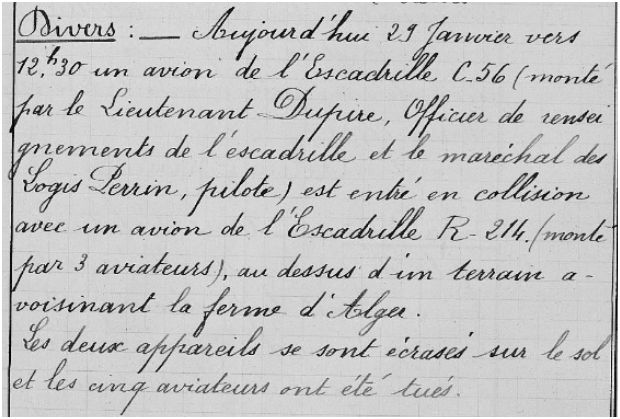 Divers : — Aujourd'hui 29 Janvier vers
12h30 un avion de l'Escadrille C-56 (monté
par le Lieutenant Dupire, Officier de rensei
gnements de l'escadrille et le maréchal des
Logis Perrin, pilote) est entré en collision
avec un avion de l'Escadrille R-214. (monté
par 3 aviateurs), au dessus d'un terrain a-
voisinant la ferme d'Alger.
Les deux appareils se sont écrasés sur le sol
et les cinq aviateurs ont été tués.